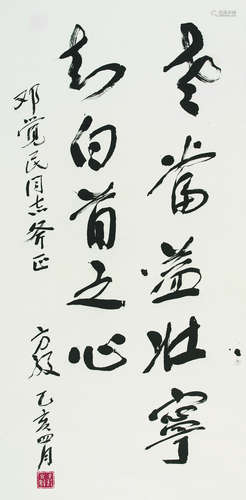 老当益壮寧
知白首之心
邓觉民同志斧正
方毅 乙亥四月